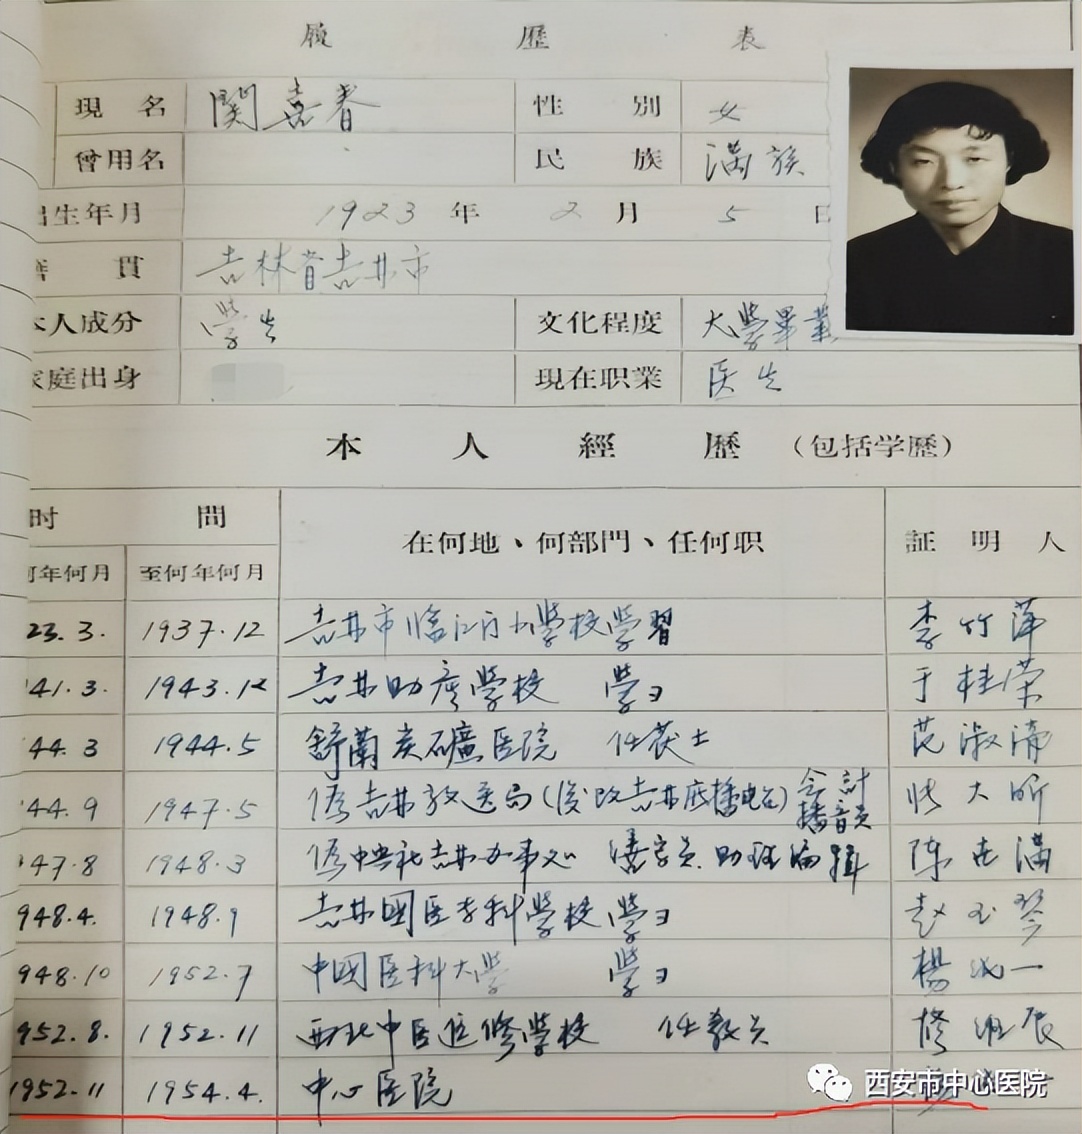 履 歷 表
現 名 関喜春 性 別 女
曾用名 民 族 满族
出生年月 1923 年 2 月 5 日
貫 吉林省吉林市
本人成分 學生 文化程度 大學畢業
家庭出身 現在职業 医生
本 人 經 歷 (包括学歷)
时 間 在何地、何部門、任何职 証 明 人
何年何月 至何年何月
23.3. 1937.12 吉林市临江门小學校學習 李竹萍
41.3. 1943.12 吉林助产學校 學习 于桂荣
44.3 1944.5 舒蘭炭礦医院 任 士 范淑清
44.9 1947.5 伪吉林放送局(後改吉林 播电台) 会計 播音员 张大昕
947.8 1948.3 伪中央社吉林办事处 助理编輯 陈 满
948.4. 1948.9 吉林國医专科學校學习 赵玉琴
948.10 1952.7 中國医科大學 學习 楊 一
952.8. 1952.11 西北中医進修學校 任教员
1952.11 1954.4. 中心医院
西安市中心医院